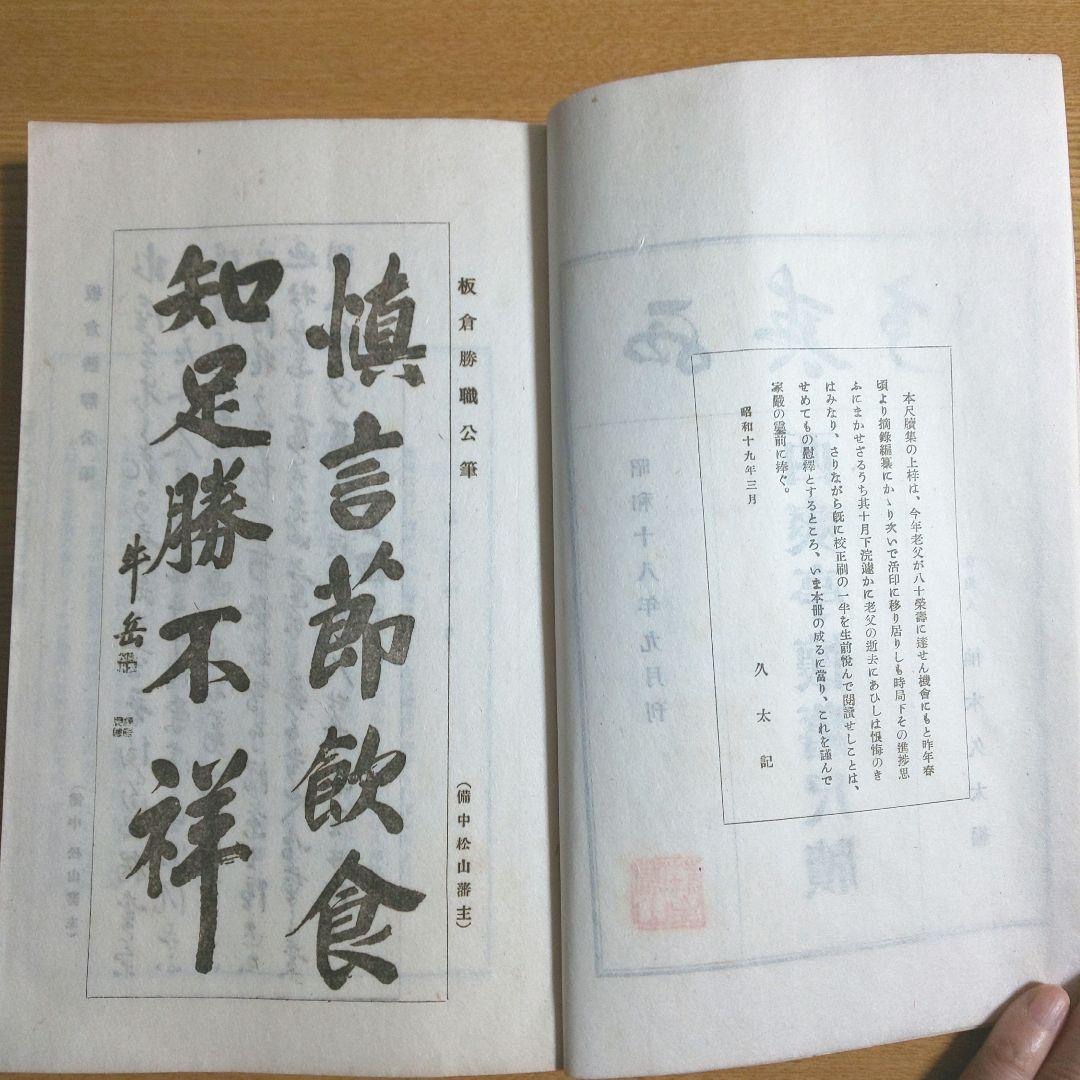 本尺牘集の上梓は、今年老父が八十榮壽に達せん機會にもと昨年春
頃より摘錄編纂にかゝり次いで活印に移り居りしも時局下その進捗思
ふにまかせざるうち其十月下浣遽かに老父の逝去にあひしは恨悔のき
はみなり、さりながら旣に校正刷の一半を生前悅んで閱讀せしことは、
せめてもの慰釋とするところ、いま本册の成るに當り、これを謹んで
家嚴の靈前に捧ぐ。
昭和十九年三月
久太記
板倉勝職公筆
(備中松山藩主)
愼言節飮食
知足勝不祥
牛岳
昭和十八年九月刊